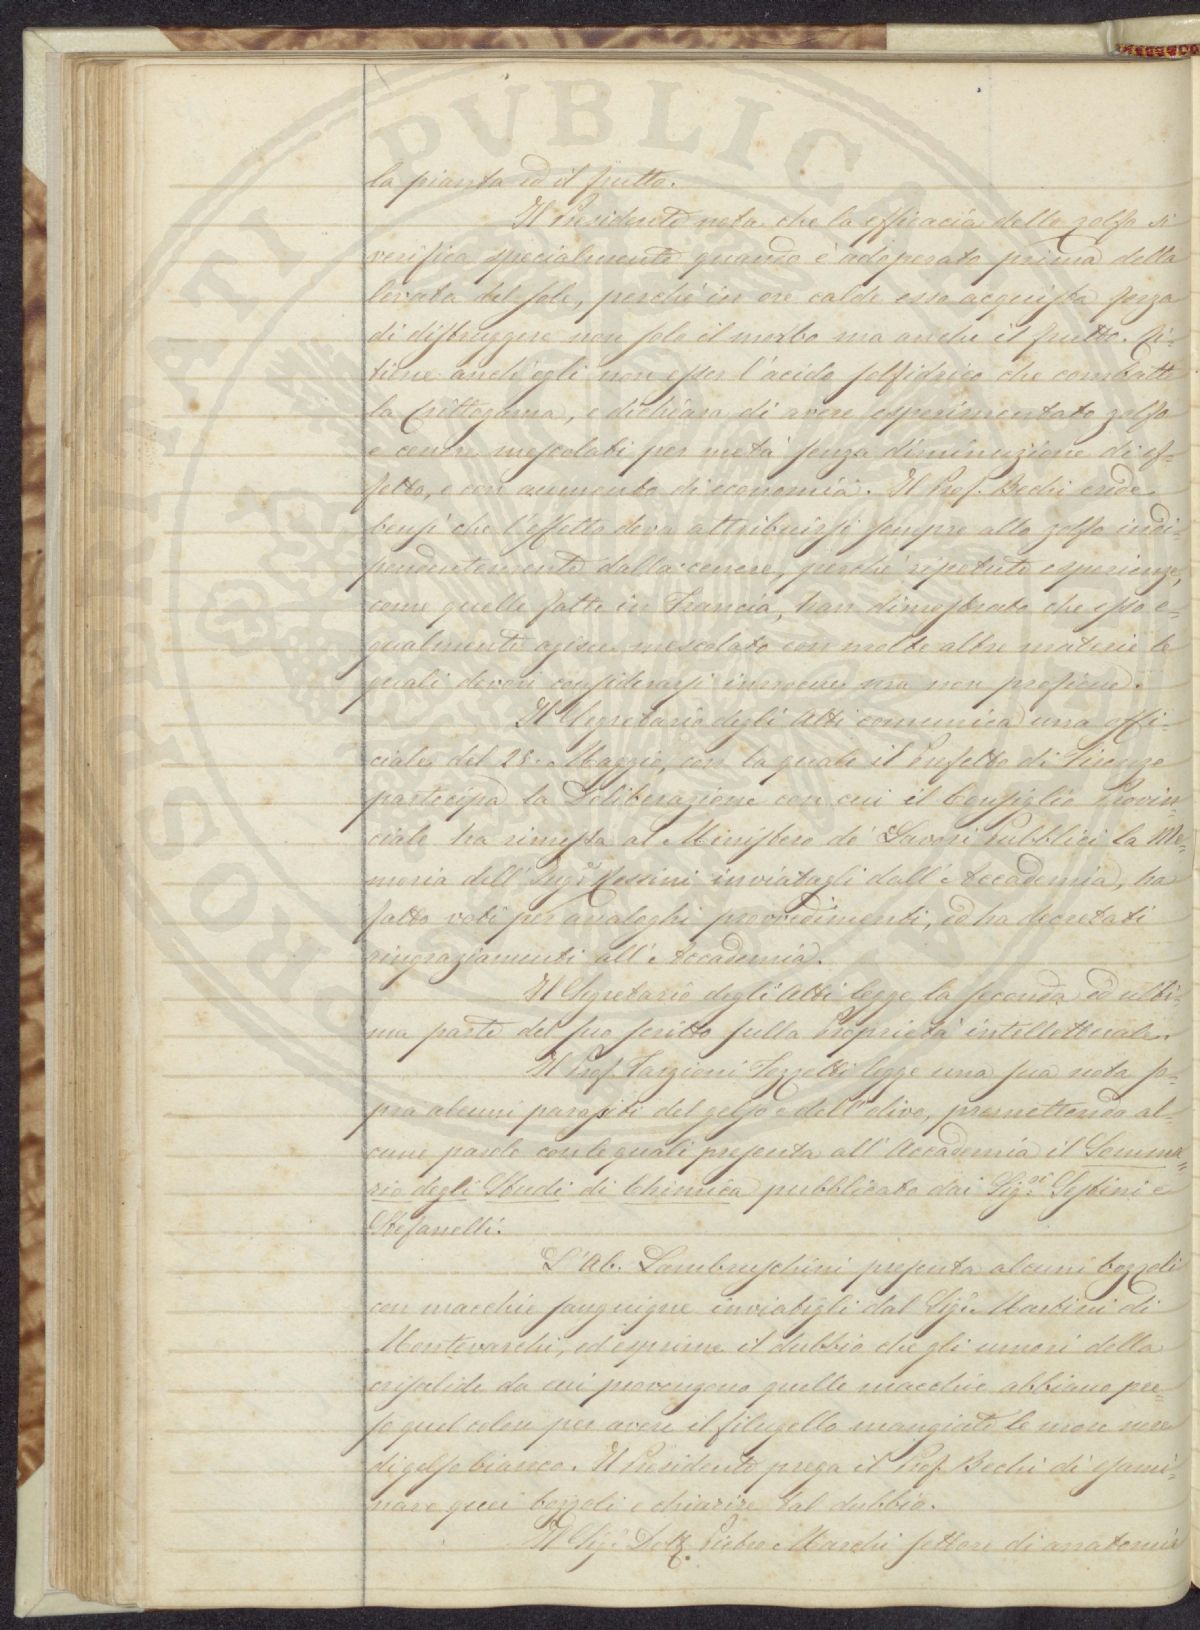 la pianta ed il frutto.
Il Presidente nota che la efficacia dello zolfo si
verifica specialmente quando è adoperato prima della
levata del sole, perché in ore calde esso acquista forza
di distruggere non solo il morbo ma anche il frutto. Ri-
tiene anch'egli non esser l'acido solfidrico che combatte
la Crittogama, e dichiara di avere esperimentato zolfo
e cenere mescolati per metà senza diminuzione di ef-
fetto, e con aumento di economia. Il Prof. Bechi crede
bensì che l'effetto deva attribuirsi sempre allo zolfo indi-
pendentemente dalla cenere, perché ripetute esperienze,
come quelle fatte in Francia, han dimostrato che esso e-
gualmente agisce mescolato con molte altre materie le
quali devon considerarsi innocue ma non proficue.
Il Segretario degli Atti comunica una offi-
ciale del 25. Maggio, con la quale il Prefetto di Firenze
partecipa la Deliberazione con cui il Consiglio Provin-
ciale ha rimessa al Ministero de' Lavori Pubblici la Me-
moria dell'Ing.e inviatagli dall'Accademia, ha
fatto voti per analoghi provvedimenti, ed ha decretati
ringraziamenti all'Accademia.
Il Segretario degli Atti legge la seconda ed ulti-
ma parte del suo scritto sulla Proprietà intellettuale.
Il Prof. Targioni Tozzetti legge una sua nota so-
pra alcuni parasiti del gelso e dell'olivo, premettendo al-
cune parole con le quali presenta all'Accademia il Somma-
rio degli Studi di Chimica pubblicato dai Sig.ri Sestini e
Stefanelli.
L'Ab. Lambruschini presenta alcuni bozzoli
con macchie sanguigne inviatigli dal Sig.r Martini di
Montevarchi, ed esprime il dubbio che gli umori della
crisalide da cui provengono quelle macchie abbiano pre-
so quel colore per avere il filugello mangiate le more nere
di gelso bianco. Il Presidente prega il Prof. Bechi di esami-
nare quei bozzoli e chiarire tal dubbio.
Il Sig.r Dott. Pietro Marchi settore di anatomia
PUBLICAE
PROSPERITATI